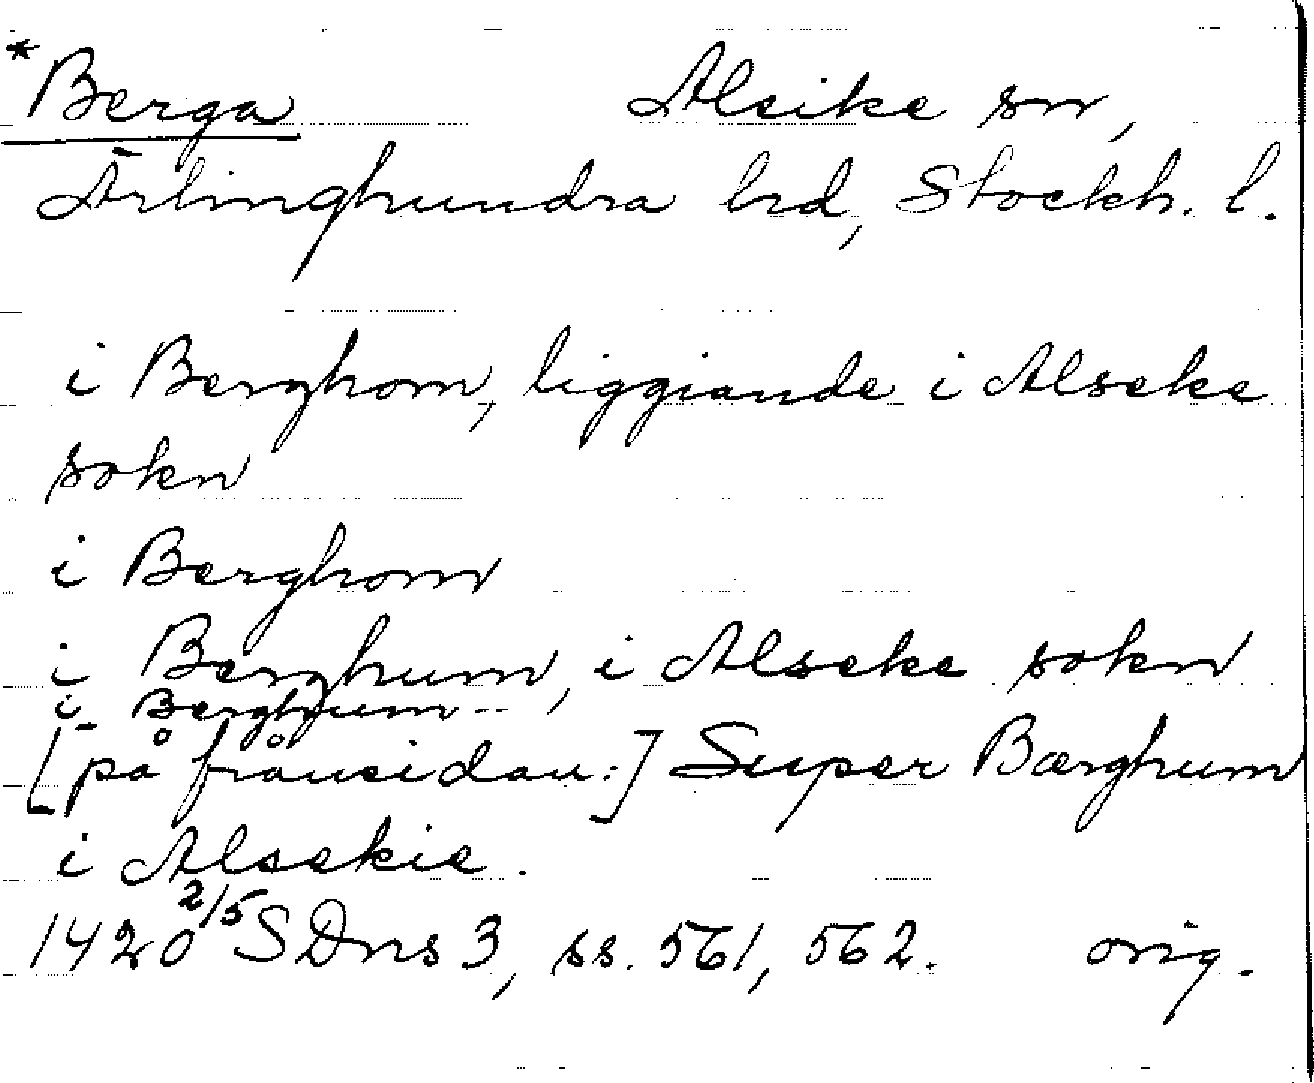 *Berga Alsike sn,
Ärlinghundra hd, Stockh. l.
i Berghom, liggiande i Alseke
sokn
i Berghom
i Berghum, i Alseke sokn
i Berghum --
[på frånsidan:] Super Bærghum
i Alsekie.
1420 2/5 SDns 3, ss. 561, 562. orig.